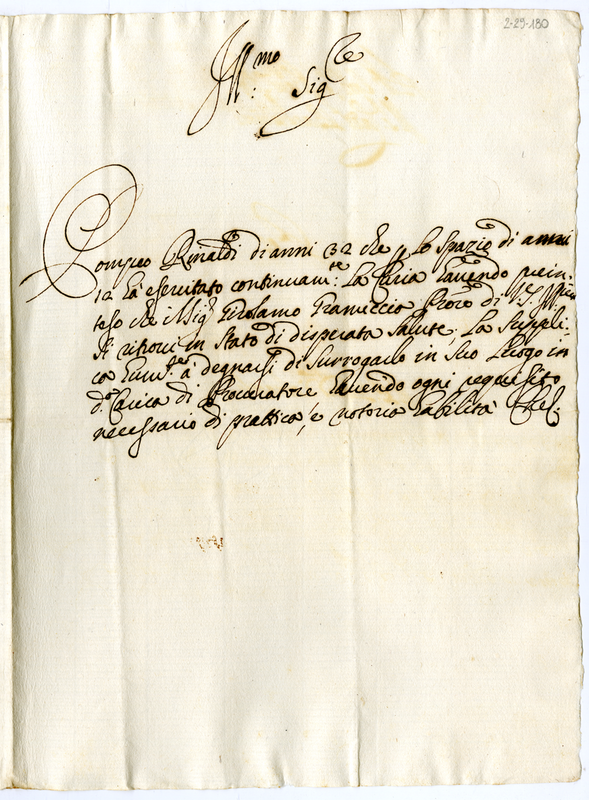 2-29-180
Ill.mo Sig.re
Pompeo Rinaldi di anni 32 che p lo spazio di anni
12 hà esercitato continuam.te la Curia havendo prein-
teso che il Sig.r Girolamo Gramiccia Proc.re di V.S. Ill.ma
si ritrovi in stato di disperata salute; La suppli-
ca hum.te à degnarsi di surrogarlo in suo luogo in
d.a Carica di Procuratore havendo ogni requesito
necessario di prattica, e notoria habilità Che.